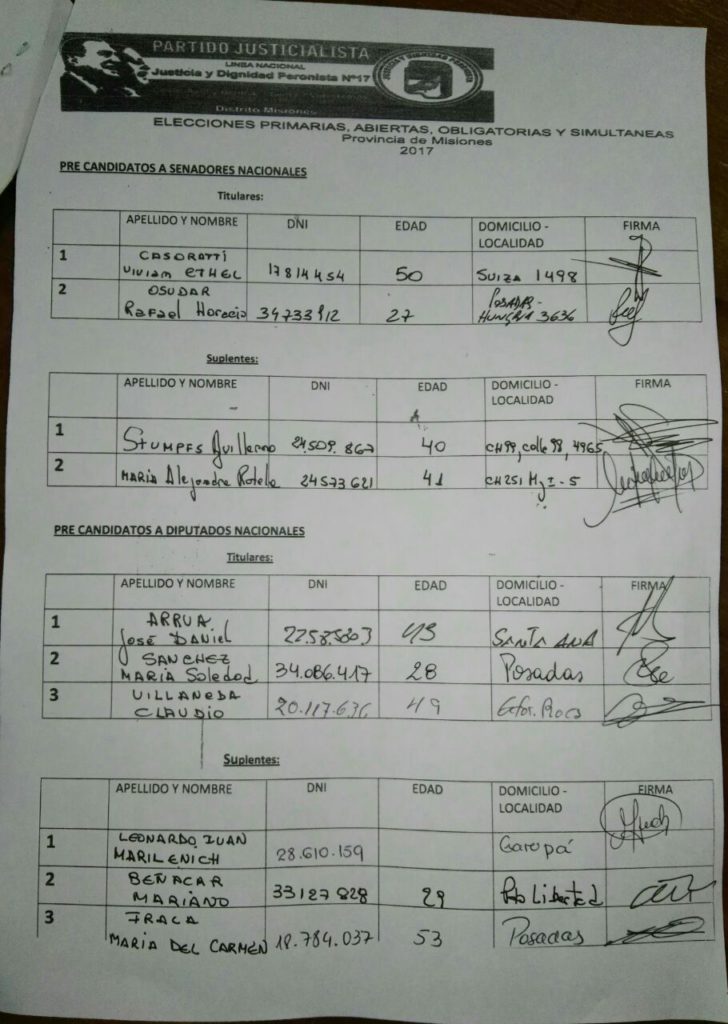 PARTIDO JUSTICIALISTA
LINEA NACIONAL
Justicia y Dignidad Peronista Nº17
JUSTICIA Y DIGNIDAD PERONISTA
Distrito Misiones
ELECCIONES PRIMARIAS, ABIERTAS, OBLIGATORIAS Y SIMULTANEAS
Provincia de Misiones
2017
PRE CANDIDATOS A SENADORES NACIONALES
Titulares:
APELLIDO Y NOMBRE DNI EDAD DOMICILIO - LOCALIDAD FIRMA
1 CASORATTI Viviam ETHEL 17814454 50 SUIZA 1498
2 OSUDAR Rafael Horacio 34733912 27 POSADAS - HUNGRIA 3636
Suplentes:
APELLIDO Y NOMBRE DNI EDAD DOMICILIO - LOCALIDAD FIRMA
1 STUMPFS Guillermo 24.509.867 40 CH99, calle 98, 4965
2 MARIA Alejandra Rotela 24573621 41 CH251 Mz I - 5
PRE CANDIDATOS A DIPUTADOS NACIONALES
Titulares:
APELLIDO Y NOMBRE DNI EDAD DOMICILIO - LOCALIDAD FIRMA
1 ARRUA José DANIEL 43 SANTA ANA
2 SANCHEZ MARIA Soledad 34.086.417 28 Posadas
3 VILLANEDA CLAUDIO 20.117.636 49
Suplentes:
APELLIDO Y NOMBRE DNI EDAD DOMICILIO - LOCALIDAD FIRMA
1 LEONARDO IUAN MARILENICH 28.610.159 Garupá
2 BEÑACAR MARIANO 33127828 29 Pto Libertad
3 FRACA MARIA DEL CARMEN 18.784.037 53 Posadas